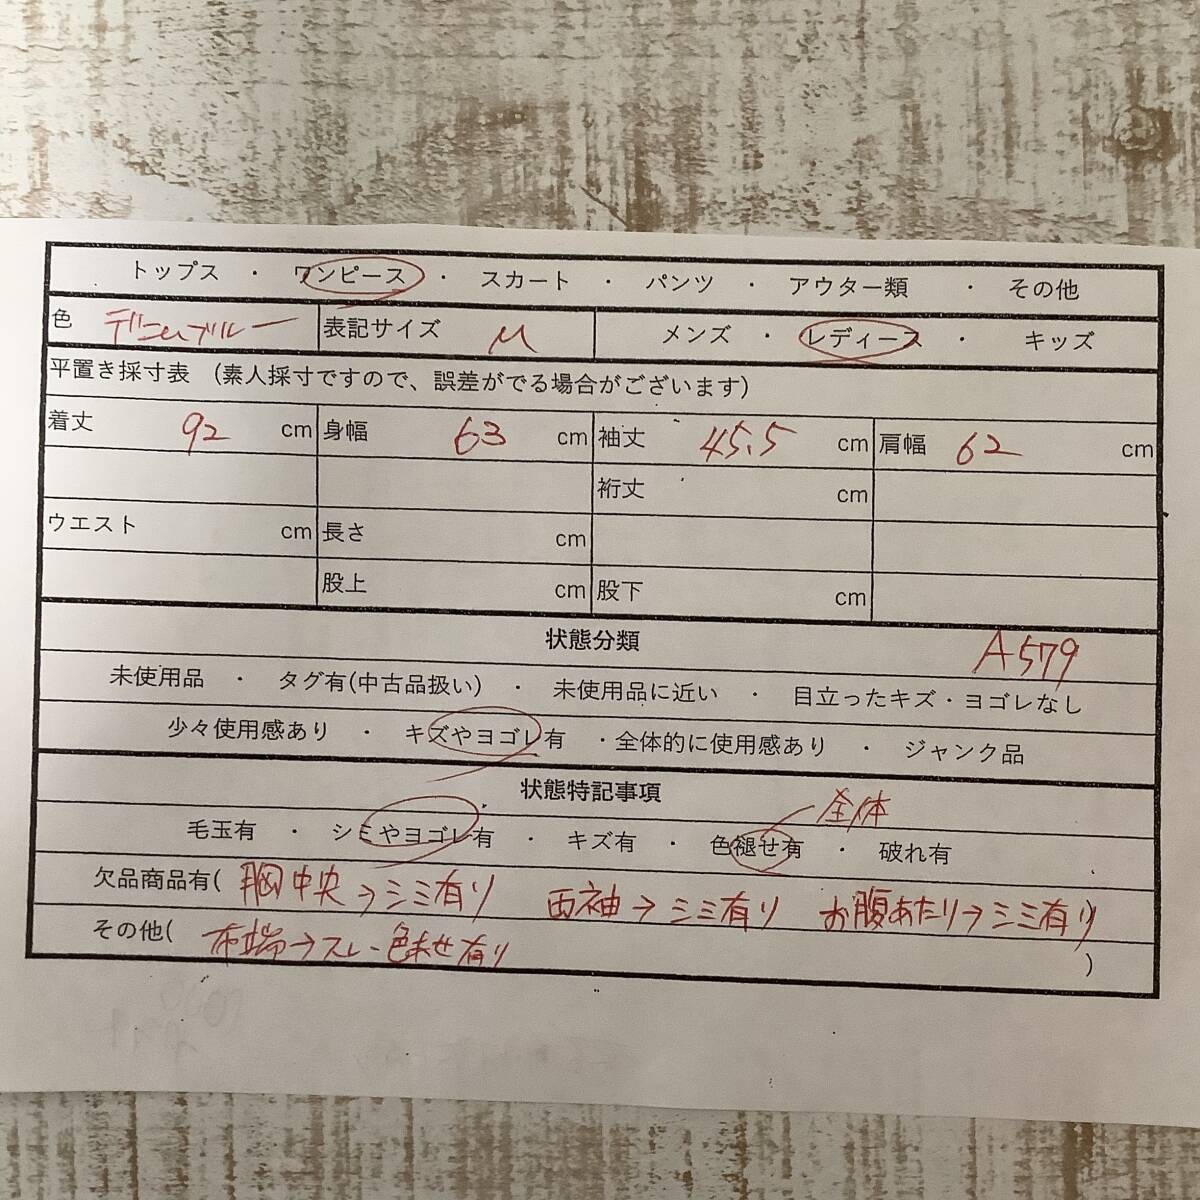 トップス ・ ワンピース ・ スカート ・ パンツ ・ アウター類 ・ その他
色 デニムブルー 表記サイズ M メンズ ・ レディース ・ キッズ
平置き採寸表 (素人採寸ですので、誤差がでる場合がございます)
着丈 92 cm 身幅 63 cm 袖丈 45.5 cm 肩幅 62 cm
裄丈 cm
ウエスト cm 長さ cm
股上 cm 股下 cm
状態分類 A579
未使用品 ・ タグ有(中古品扱い) ・ 未使用品に近い ・ 目立ったキズ・ヨゴレなし
少々使用感あり ・ キズやヨゴレ有 ・全体的に使用感あり ・ ジャンク品
状態特記事項
全体
毛玉有 ・ シミやヨゴレ有 ・ キズ有 ・ 色褪せ有 ・ 破れ有
欠品商品有( 胸中央→シミ有り 両袖→シミ有り お腹あたり→シミ有り )
その他( 布端→スレ・色あせ有り )